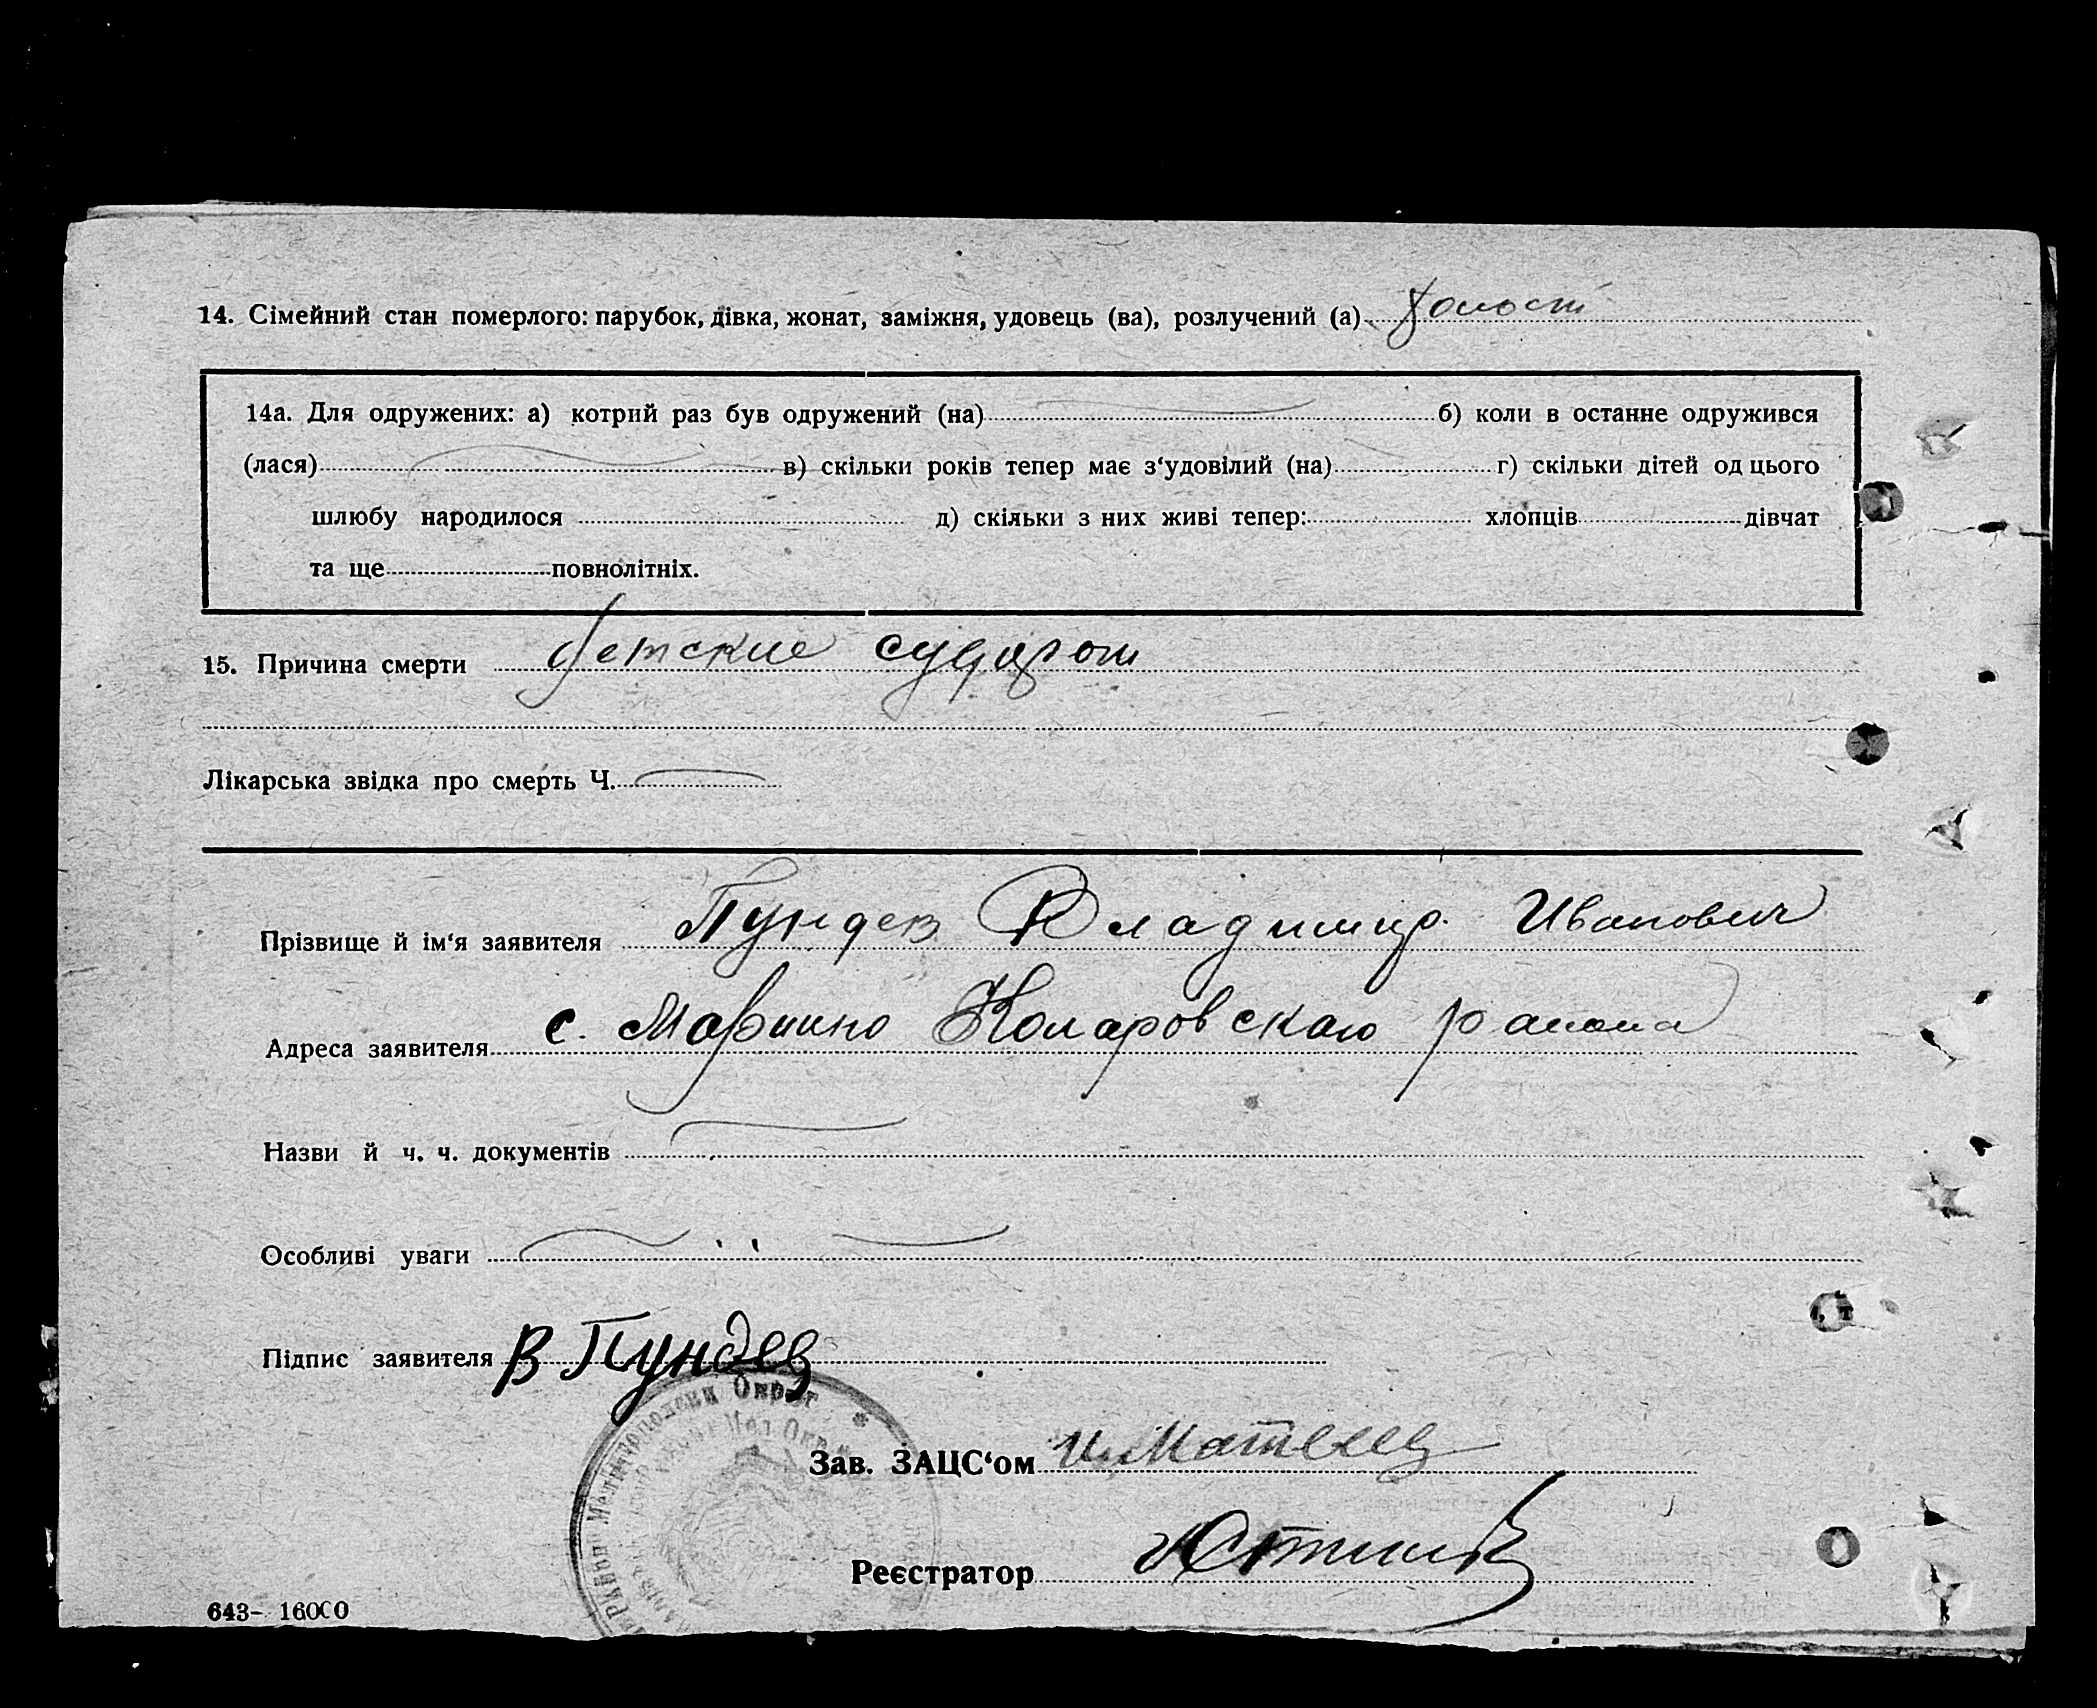 14. Сімейний стан померлого: парубок, дівка, жонат, заміжня, удовець (ва), розлучений (а) холост
14а. Для одружених: а) котрий раз був одружений (на) б) коли в останне одружився
(лася) в) скільки років тепер має з‘удовілий (на) г) скільки дітей од цього
шлюбу народилося д) скільки з них живі тепер: хлопців дівчат
та ще повнолітніх.
15. Причина смерти детские
Лікарська звідка про смерть Ч.
Прізвище й ім‘я заявителя Пундев Владимир Иванович
Адреса заявителя с. Марьино Коларовскаго района
Назви й ч. ч. документів
Особливі уваги
Підпис заявителя В Пундев
Мелітопольськ Округ
Зав. ЗАЦС‘ом
Реєстратор
643- 16000